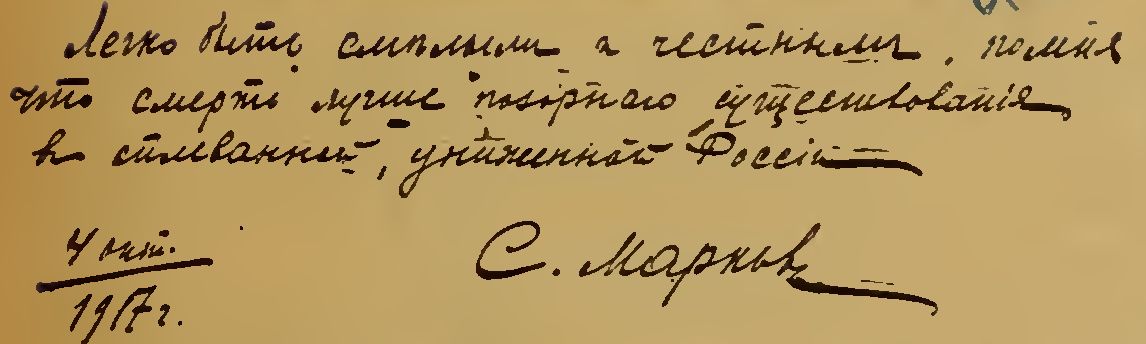 Легко быть смѣлымъ и честнымъ, помня
что смерть лучше позорнаго существованія
въ оплеванной, униженной Россіи
4 окт.
1917 г.
С. Марковъ